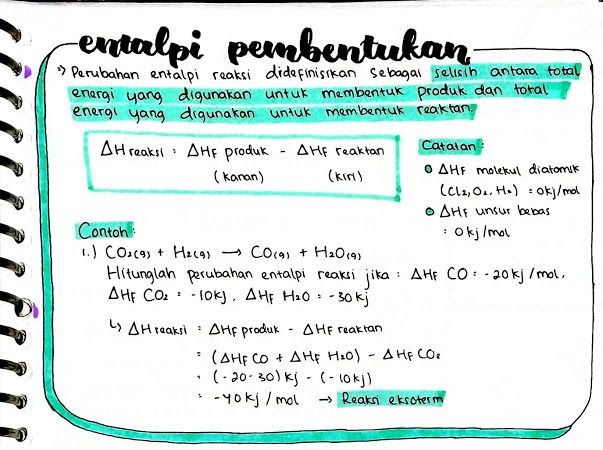 entalpi pembentukan
» Perubahan entalpi reaksi didefinisikan sebagai selisih antara total
energi yang digunakan untuk membentuk produk dan total
energi yang digunakan untuk membentuk reaktan.
ΔH reaksi : ΔHF produk - ΔHF reaktan
(kanan) (kiri)
Catatan :
ΔHF molekul diatomik
(Cl2, O2, H2) = 0 kj/mol
ΔHF unsur bebas
: 0 kj/mol
Contoh :
1.) CO2(g) + H2(g) → CO(g) + H2O(g)
Hitunglah perubahan entalpi reaksi jika : ΔHF CO = -20 kj/mol,
ΔHF CO2 = -10 kj, ΔHF H2O = -30 kj
↳ ΔH reaksi = ΔHF produk - ΔHF reaktan
= (ΔHF CO + ΔHF H2O) - ΔHF CO2
= (-20-30) kj - (-10 kj)
= -40 kj/mol → Reaksi eksoterm